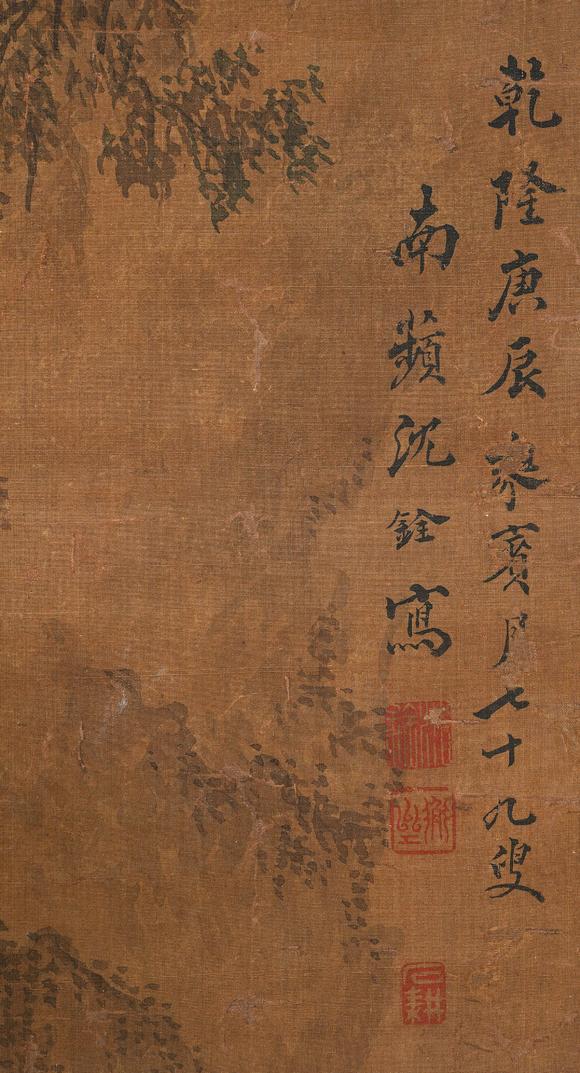 乾隆庚辰蕤賓月七十九叟
南蘋沈銓寫